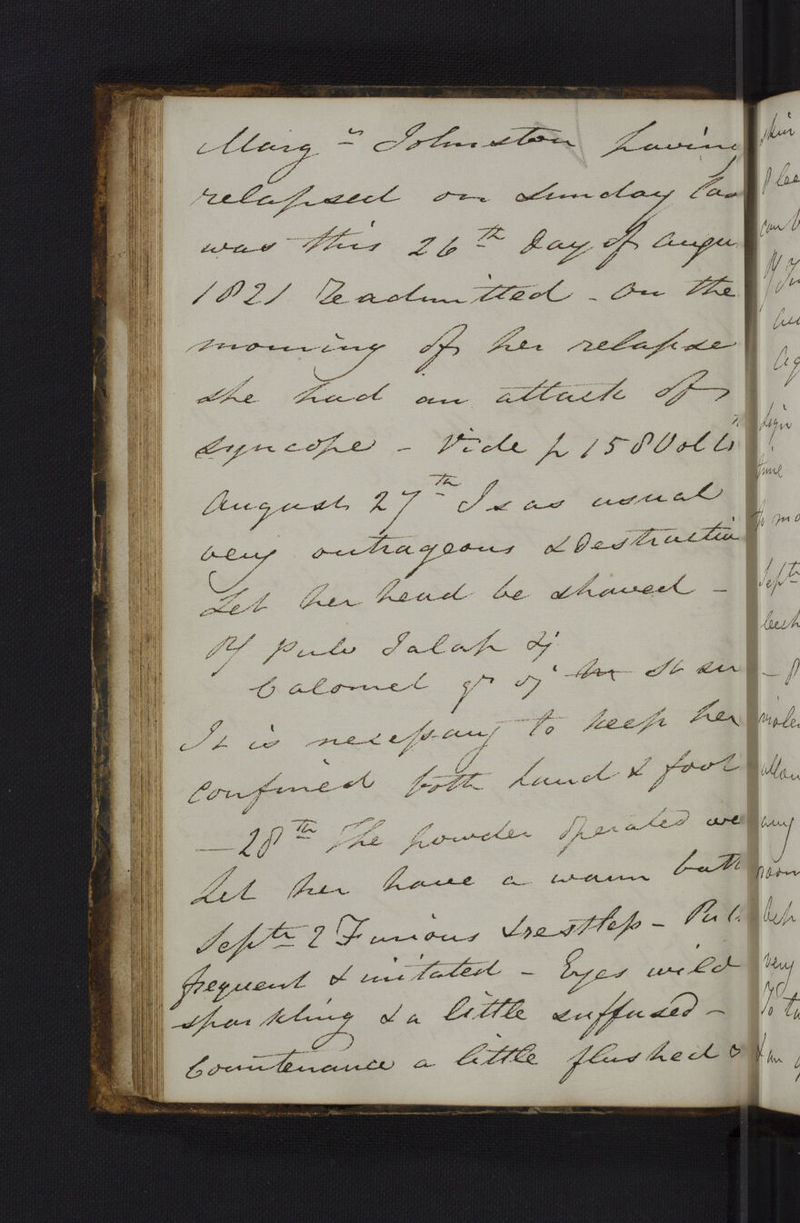 Margt Johnston having
relapsed on Sunday las
was this 26th Day of Augu
1821 Readmitted - On the
morning of her relapse
she had an attack of
syncope - Vide p 158 Vol
August 27th Is as usual
very outrageous & Destructiv
Let her head be shaved -
℞ Pulv Jalap ʒj
Calomel gr vj St su
It is necessary to keep her
confined both hand & foot
- 28th The powder operated we
Let her have a warm bath
Septr 2 Furious & restless - Puls
frequent & irritated - Eyes wild
sparkling & a little suffused -
Countenance a little flushed &
skin
can b
time
to mo
Septr
very